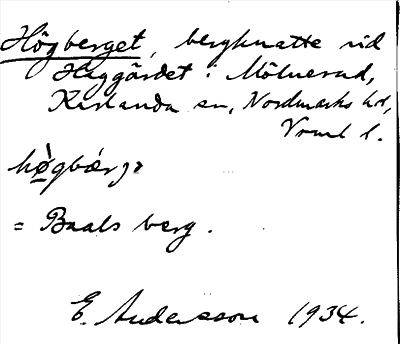 Högberget, bergknatte vid
Haggärdet i Mölnerud,
Karlanda sn, Nordmarks hd,
Vrml l.
hö̀gbær̨ɜ
= Baals berg.
E. Andersson 1934.